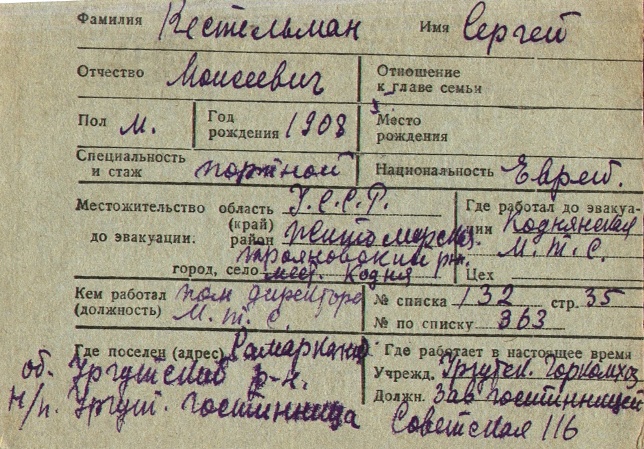 Фамилия Кестельман Имя Сергей
Отчество Моисеевич Отношение к главе семьи
Пол м. Год рождения 1908 Место рождения
Специальность и стаж портной Национальность Еврей.
Местожительство область У.С.С.Р. Где работал до эвакуа-
(край) ции Коднянская
до эвакуации. район Житомирск. М.Т.С.
Трояновский р-н.
город, село мест. Кодня Цех
Кем работал пом директора № списка 132 стр. 35
(должность) М.Т.С. № по списку 363
Где поселен (адрес) Самарканд. Где работает в настоящее время
об. Ургутский р-н. Учрежд. Ургутск. Горкомхоз
н/п. Ургут. гостинница Должн. Зав гостинницей
Советская 116